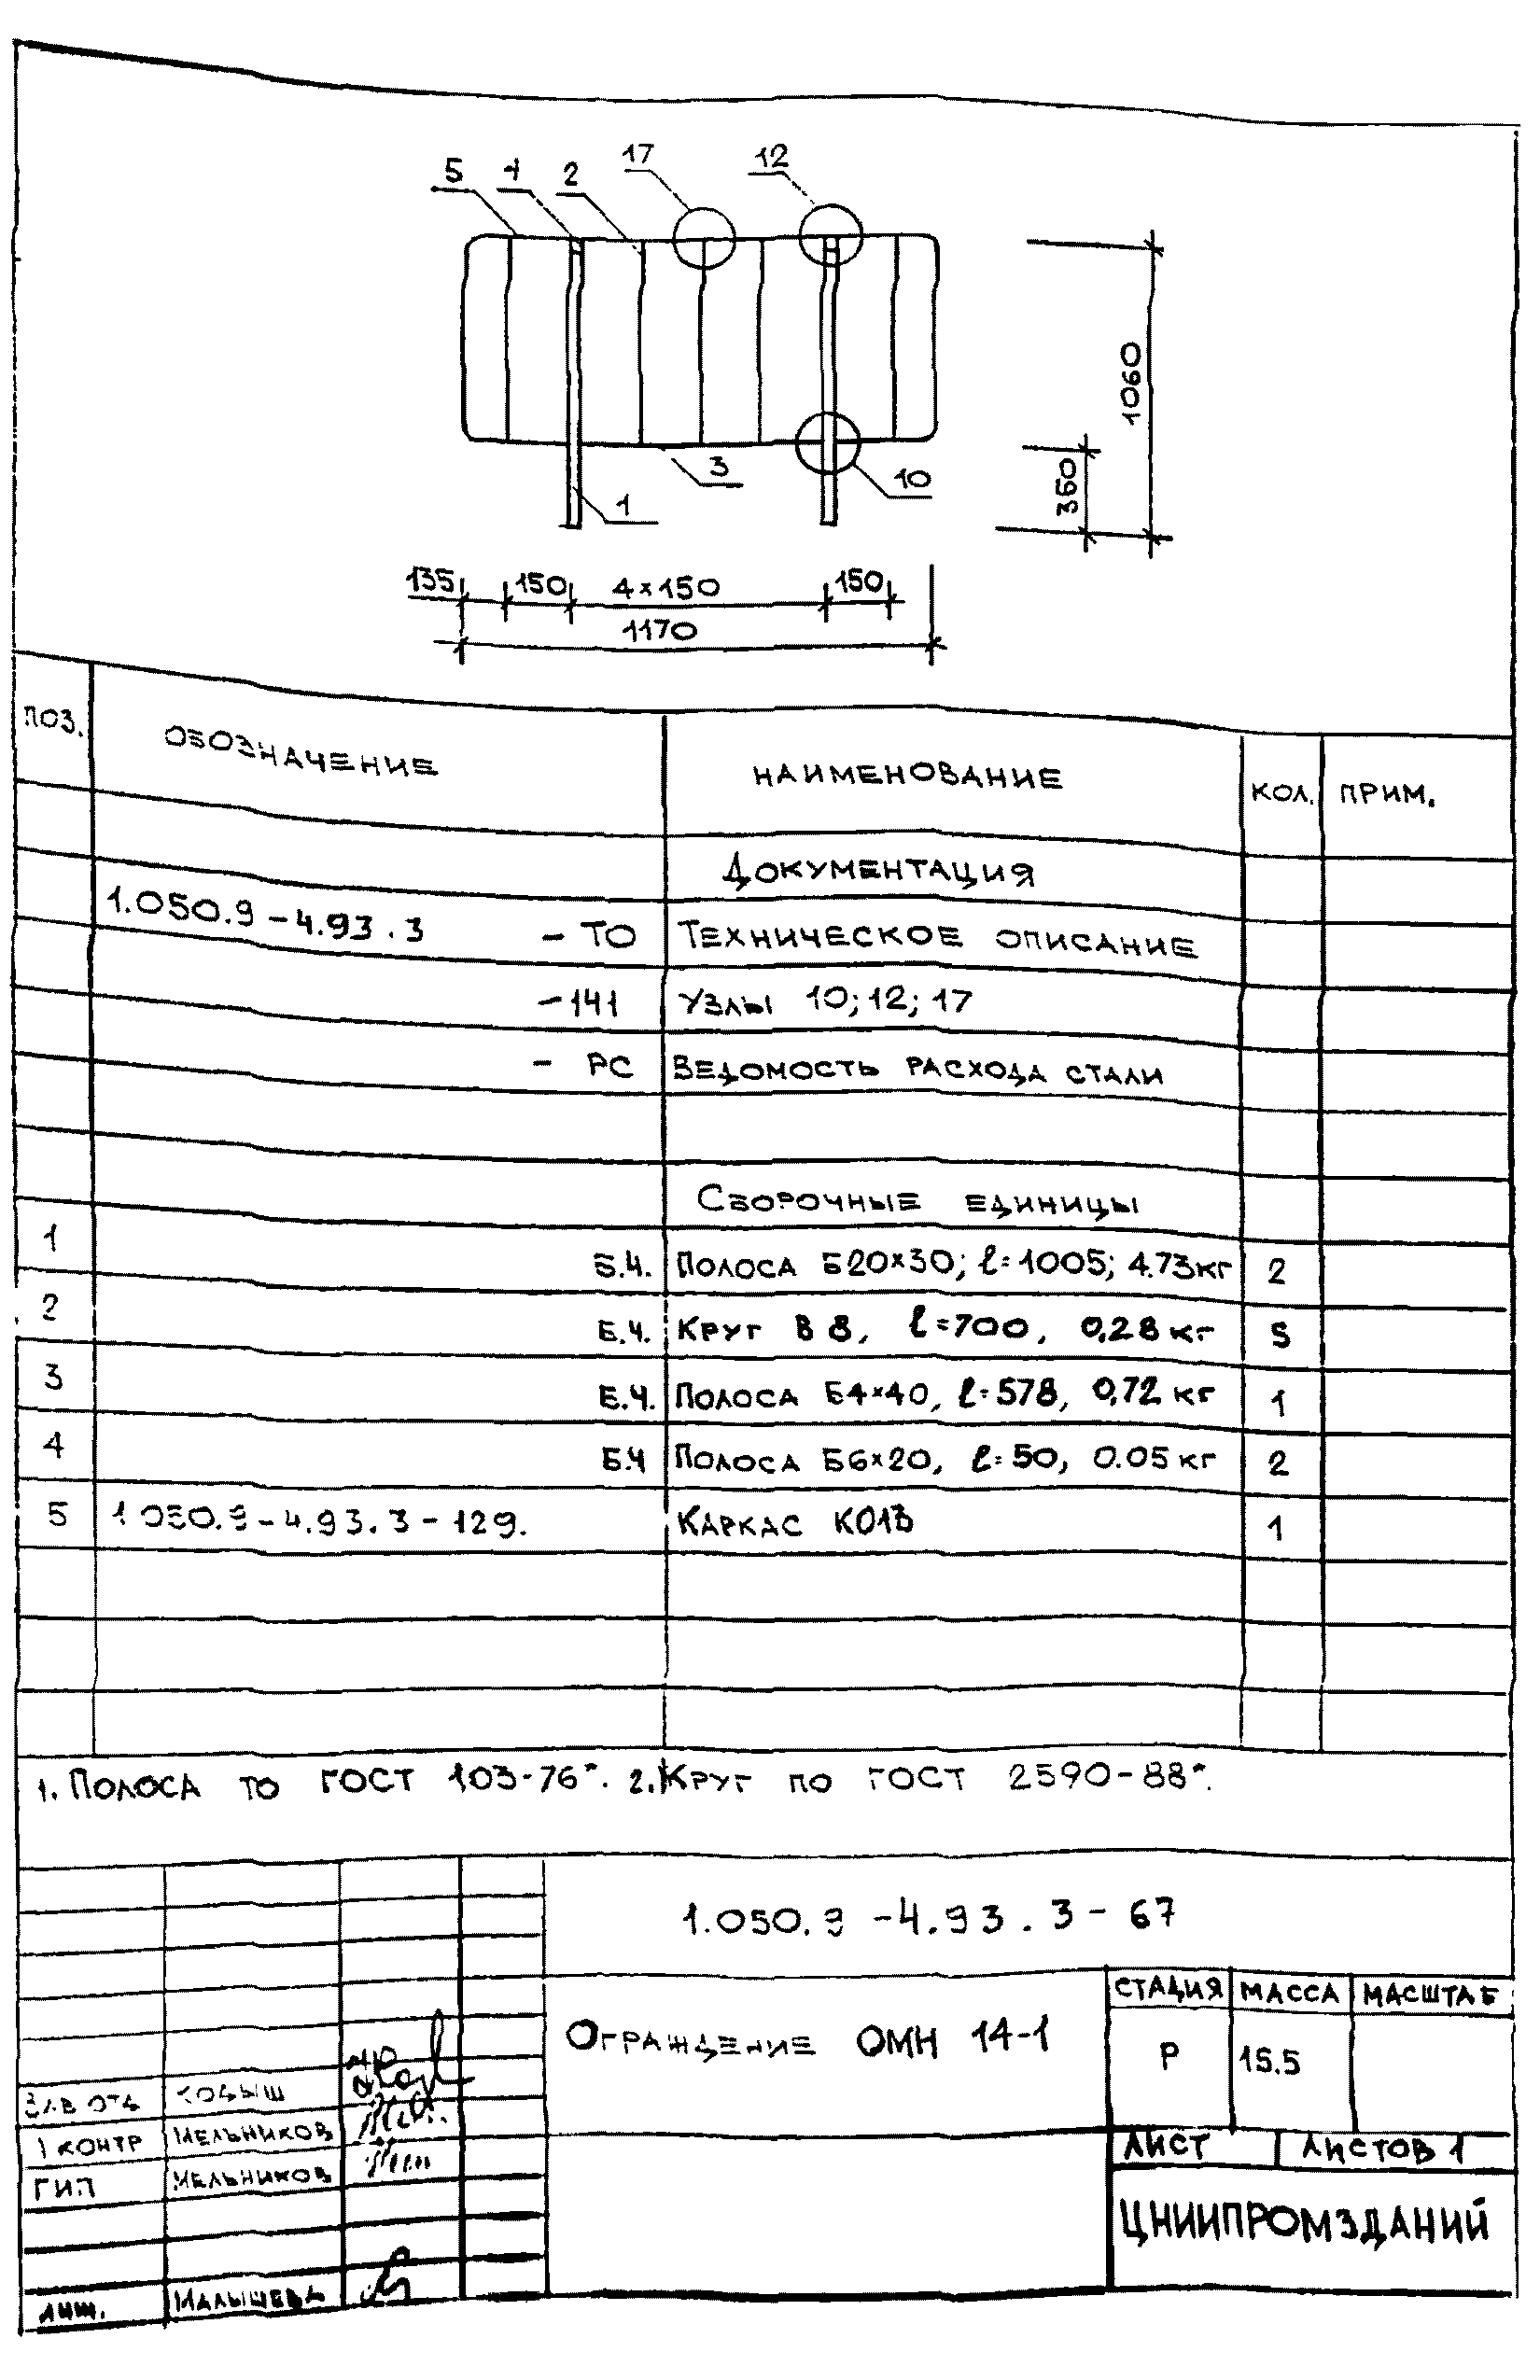 5 4 2 17 12
3 10
1
1060
360
135 150 4×150 150
1170
ПОЗ. ОБОЗНАЧЕНИЕ НАИМЕНОВАНИЕ КОЛ. ПРИМ.
ДОКУМЕНТАЦИЯ
1.050.9-4.93.3 - ТО ТЕХНИЧЕСКОЕ ОПИСАНИЕ
-141 УЗЛЫ 10; 12; 17
- РС ВЕДОМОСТЬ РАСХОДА СТАЛИ
СБОРОЧНЫЕ ЕДИНИЦЫ
1 Б.Ч. ПОЛОСА Б20×30; ℓ=1005; 4.73кг 2
2 Б.Ч. КРУГ В 8, ℓ=700, 0,28 кг 5
3 Б.Ч. ПОЛОСА Б4×40, ℓ=578, 0,72 кг 1
4 Б.Ч ПОЛОСА Б6×20, ℓ=50, 0.05 кг 2
5 1.050.9-4.93.3-129. КАРКАС 1
1. ПОЛОСА ТО ГОСТ 103-76*. 2. КРУГ ПО ГОСТ 2590-88*.
1.050.9-4.93.3-67
ОГРАЖДЕНИЕ ОМН 14-1
СТАДИЯ МАССА МАСШТАБ
Р 15.5
ЗАВ ОТД
КОНТР МЕЛЬНИКОВ
ГИП МЕЛЬНИКОВ
ЛИСТ ЛИСТОВ 1
ЦНИИПРОМЗДАНИЙ
МАЛЫШЕВА